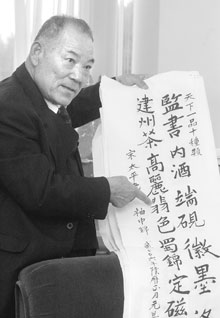 天下一品十種類
監書内酒端硯徽墨洛
建州茶高麗翡色蜀錦定磁
宋太平
袖中錦